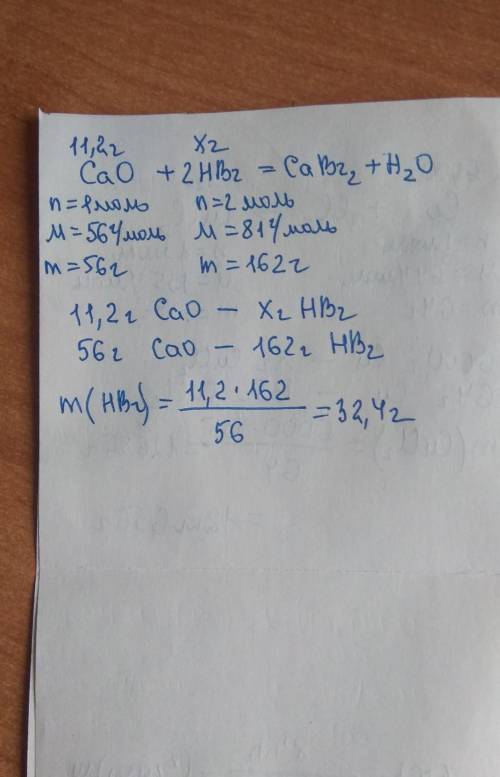 11,2г xг
CaO + 2HBr = CaBr₂ + H₂O
n = 1моль n = 2 моль
M = 56г/моль M = 81г/моль
m = 56г m = 162г
11,2г CaO — xг HBr
56г CaO — 162г HBr
m(HBr) = 11,2 · 162 / 56 = 32,4г